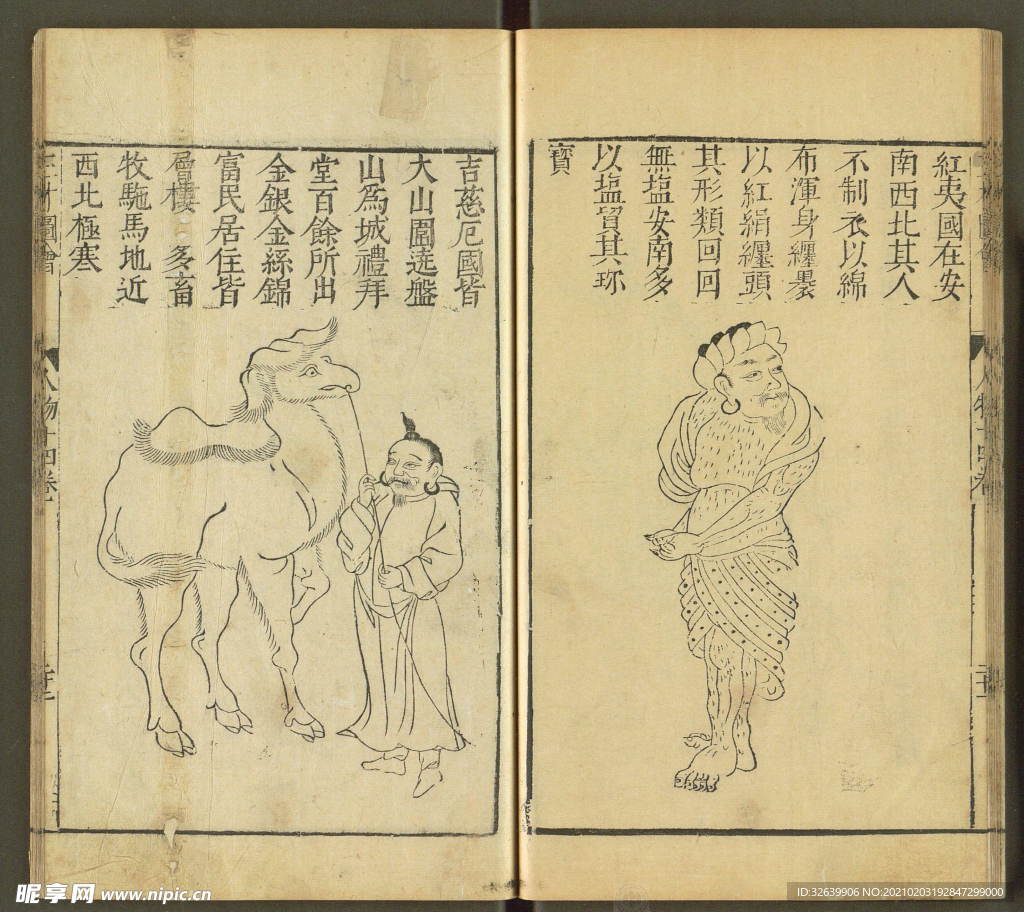 紅夷國在安
南西北其人
不制衣以綿
布渾身纏裹
以紅絹纏頭
其形類回回
無塩安南多
以塩貿其珎
寶
吉慈厄國皆
大山圍遶盤
山爲城禮拜
堂百餘所出
金銀金絲錦
富民居住皆
層樓多畜
牧駞馬地近
西北極寒
三才圖會
人物十四卷
昵享网 www.nipic.cn
ID:32639906 NO:20210203192847299000